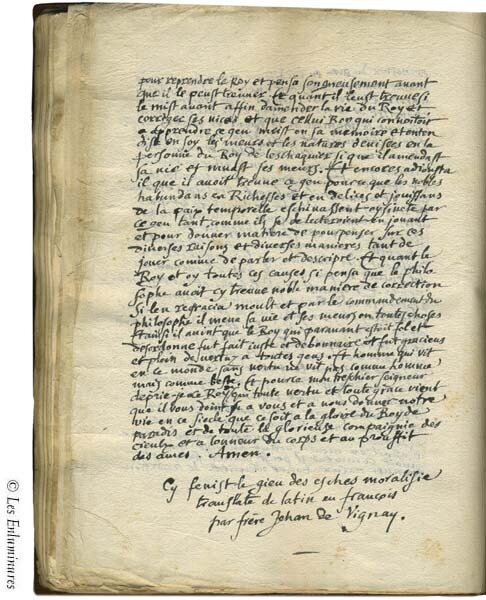 pour reprendre le Roy et pensa songneusement auant
que il le peust treuuer. Et quant il leust treuue si
le mist auant affin damender la vie du Roy et
corriger ses vices et que cellui Roy qui conuoitoit
a apprendre ce geu meist en sa memoire et enten
dist en soy les meurs et les natures deuisees en la
personne du Roy de leschaquier si que il amendast
sa vie et muast ses meurs. Et encores adiousta
il que il auoit treuue ce geu pource que les nobles
habundans en Richesses et en delices et jouissans
de la paix temporelle eschiuassent oysiuete par
ce geu tant comme ilz se delecteroient en jouant
et pour donner matiere de pourpenser sur ces
diuerses raisons et diuerses manieres tant de
jouer comme de parler et descripre. Et quant le
Roy et oy toutes ces causes si pensa que le philo
sophe auoit cy treuue noble maniere de correction
Si len regracia moult et par le commandement du
philosophe il mena sa vie et ses meurs en toutes choses
Et ainsi il auint que le Roy qui parauant estoit sol et
desordonne fut fait juste et debonnaire et fut gracieus
et plein de vertuz a toutes gens. Et homme qui vit
en ce monde sans vertu ne vit pas comme homme
mais comme beste. Et pource mon treschier seigneur
deprie je a Roy qui toute vertu et toute grace vient
que il vous doint a vous et a nous donner notre
vie en ce siecle que ce soit a la gloire du Roy de
paradis et de toute le glorieuse compaignie des
cieulx et a lonneur du corps et au prouffit
des ames. Amen.
Cy fenist le gieu des esches moralisie
translate de latin en francois
par frère Jehan de Vignay.
© Les Enluminures